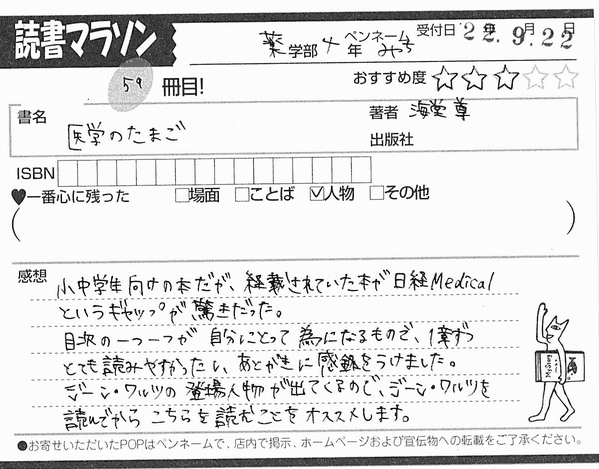 読書マラソン
薬学部 4年 ペンネーム みち 受付日'22年9月22日
59冊目!
おすすめ度 ★★★☆☆
書名 医学のたまご
著者 海堂 尊
出版社
ISBN
♥一番心に残った □場面 □ことば ☑人物 □その他
(
)
感想
小中学生向けの本だが、経載されていた本が日経Medical
というギャップが驚きだった。
目次の一つ一つが自分にとって為になるもので、1章ずつ
とても読みやすかったし、あとがきに感銘をうけました。
ジーン・ワルツの登場人物が出てくるので、ジーン・ワルツを
読んでからこちらを読むことをオススメします。
●お寄せいただいたPOPはペンネームで、店内で掲示、ホームページおよび宣伝物への転載をご了承ください。